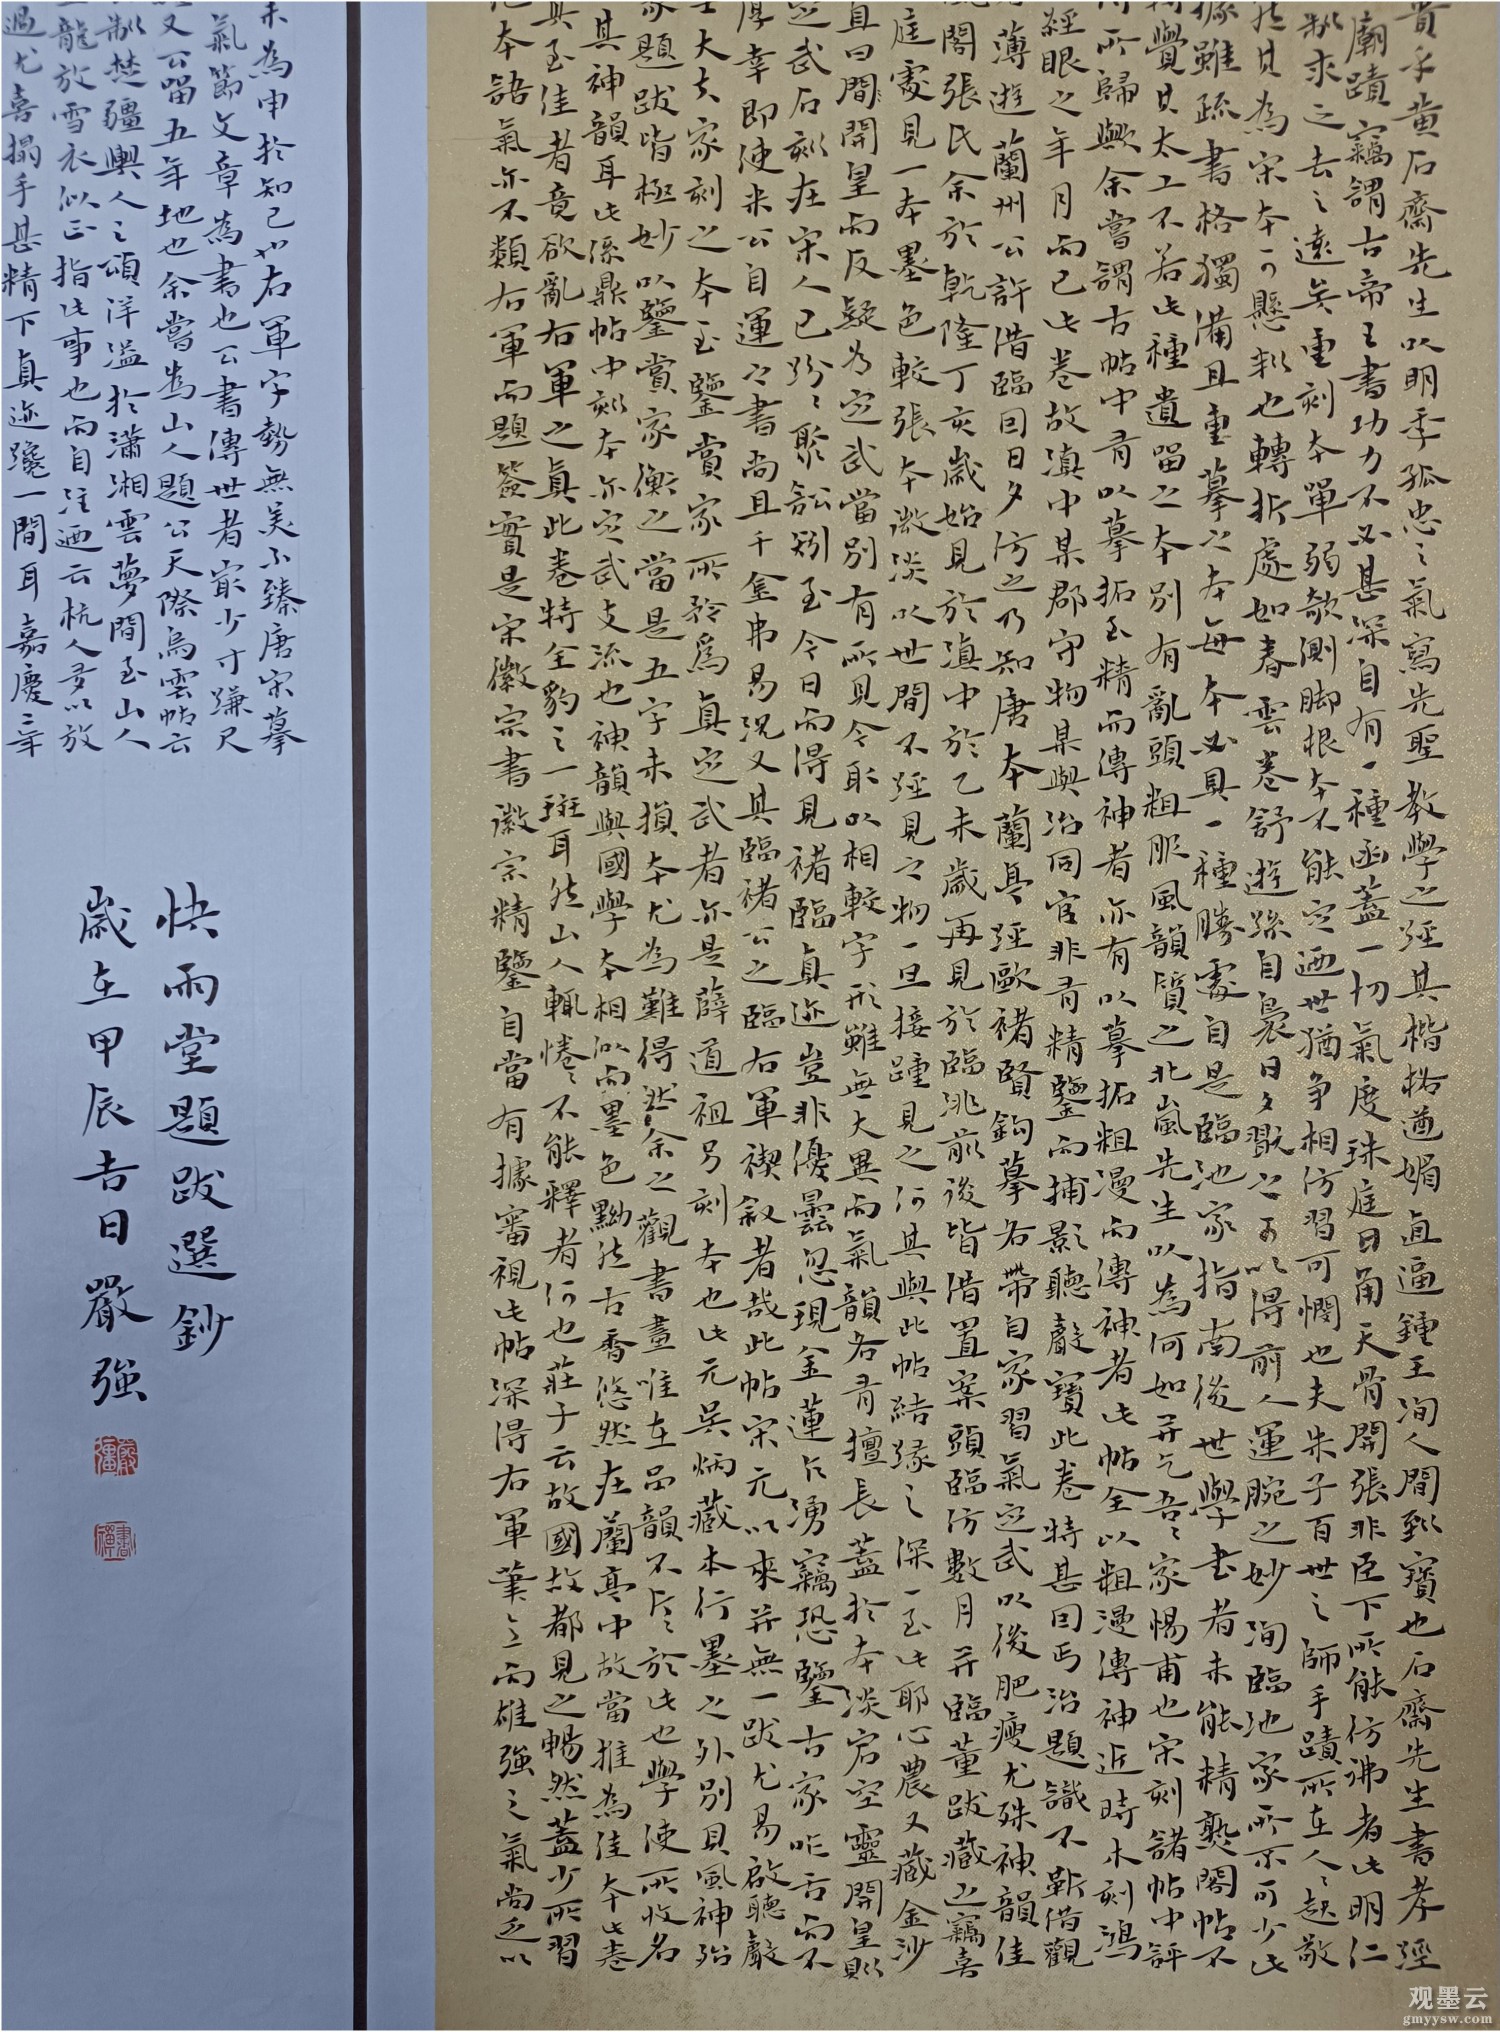 貴乎黄石齋先生以明季孤忠之氣寫先聖教學之經其楷格遒媚直逼鍾王洵人間至寶也石齋先生書孝經
廟蹟竊謂古帝王書功力不必甚深自有一種函蓋一切氣度珠庭日角天骨開張非臣下所能彷彿者此明仁
求之去之遠矣重刻本單弱欹側脚根本不能定迺世猶爭相仿習可憫也夫朱子百世之師手蹟所在人人起敬
其為宋本可懸判也轉折處如春雲卷舒遊絲自裊日夕翫之可以得前人運腕之妙洵臨池家所不可少此
據雖疏書格獨備且重摹之本每本必具一種勝處自是臨池家指南後世學書者未能精熟閣帖不
覺其太工不若此種遺留之本别有亂頭粗服風韻質之北嵐先生以為何如并乞吾家惕甫也宋刻諸帖中評
所歸歟余嘗謂古帖中有以摹拓至精而傳神者亦有以摹拓粗漫而傳神者此帖全以粗漫傳神近時木刻鴻
經眼之年月而已此卷故滇中某郡守物某與治同官非有精鑒而捕影聽聲寶此卷特甚曰丐治題識不靳借觀
薄遊蘭州公許借臨因日夕仿之乃知唐本蘭亭經歐褚賢鈎摹各帶自家習氣定武以後肥瘦尤殊神韻佳
閣張氏余於乾隆丁亥歲始見於滇中於乙未歲再見於臨洮前後皆借置案頭臨仿數月并臨董跋藏之竊喜
庭處見一本墨色較張本微淡以世間不經見之物一旦接踵見之何其與此帖結緣之深一至此耶心農又藏金沙
直曰開皇而反疑為定武當别有所見今取以相較字形雖無大異而氣韻各有擅長蓋於本淡宕空靈開皇則
定武石刻在宋人已紛紛聚訟矧至今日而得見褚臨真迹豈非優曇忽現金蓮上湧竊恐鑒古家咋舌而不
厚幸即使米公自運之書尚且千金弗易況又其臨褚公之臨右軍禊叙者哉此帖宋元以來并無一跋尤易啟聽聲
士大夫家刻之本至鑒賞家所矜為真定武者亦是薛道祖另刻本也此元吳炳藏本行墨之外别具風神殆
題跋皆極妙以鑒賞家衡之當是五字未損本尤為難得然余之觀書畫唯在品韻不屑屑於此也學使所收名
其神韻耳此係鼎帖中刻本亦定武支流也神韻與國學本相似而墨色黝然古香悠然在蘭亭中故當推為佳本此卷
具至佳者竟欲亂右軍之真此卷特全豹之一斑耳然山人輒惓惓不能釋者何也莊子云故國故都見之暢然蓋少所習
本語氣亦不類右軍而題簽實是宋徽宗書徽宗精鑒自當有據審視此帖深得右軍筆意而雄強之氣尚乏以
未為申於知己也右軍字勢無美不臻唐宋摹
氣節文章為書也公書傳世者最少寸縑尺
又云留五年地也余嘗為山人題公天際烏雲帖云
制楚疆輿人之頌洋溢於瀟湘雲夢間至山人
龍放雪衣似正指此事也而自注迺云杭人多以放
過尤喜搨手甚精下真迹纔一間耳嘉慶三年
快雨堂題跋選鈔
歲在甲辰吉日嚴強
观墨云
gmyysw.com